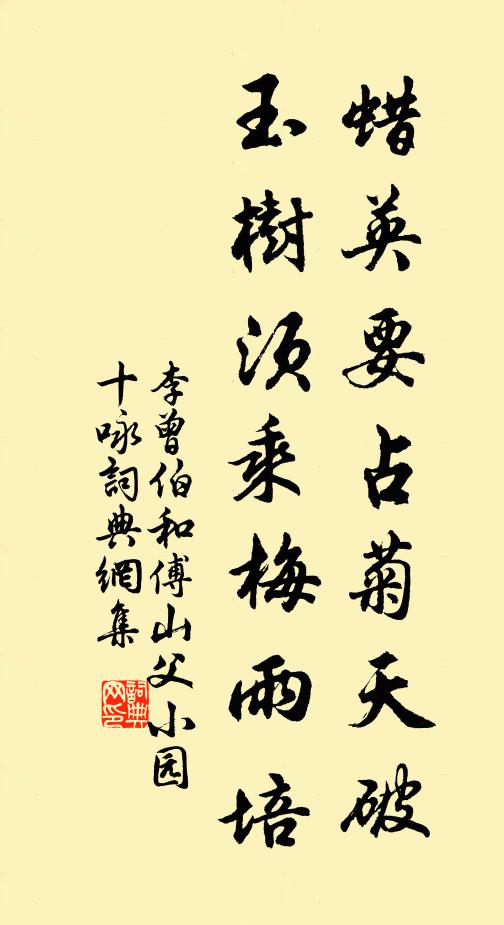 蜡英要占菊天破
玉樹須乘梅雨培
李曾伯和傅山父小园
十咏詞典網集
詞典网印